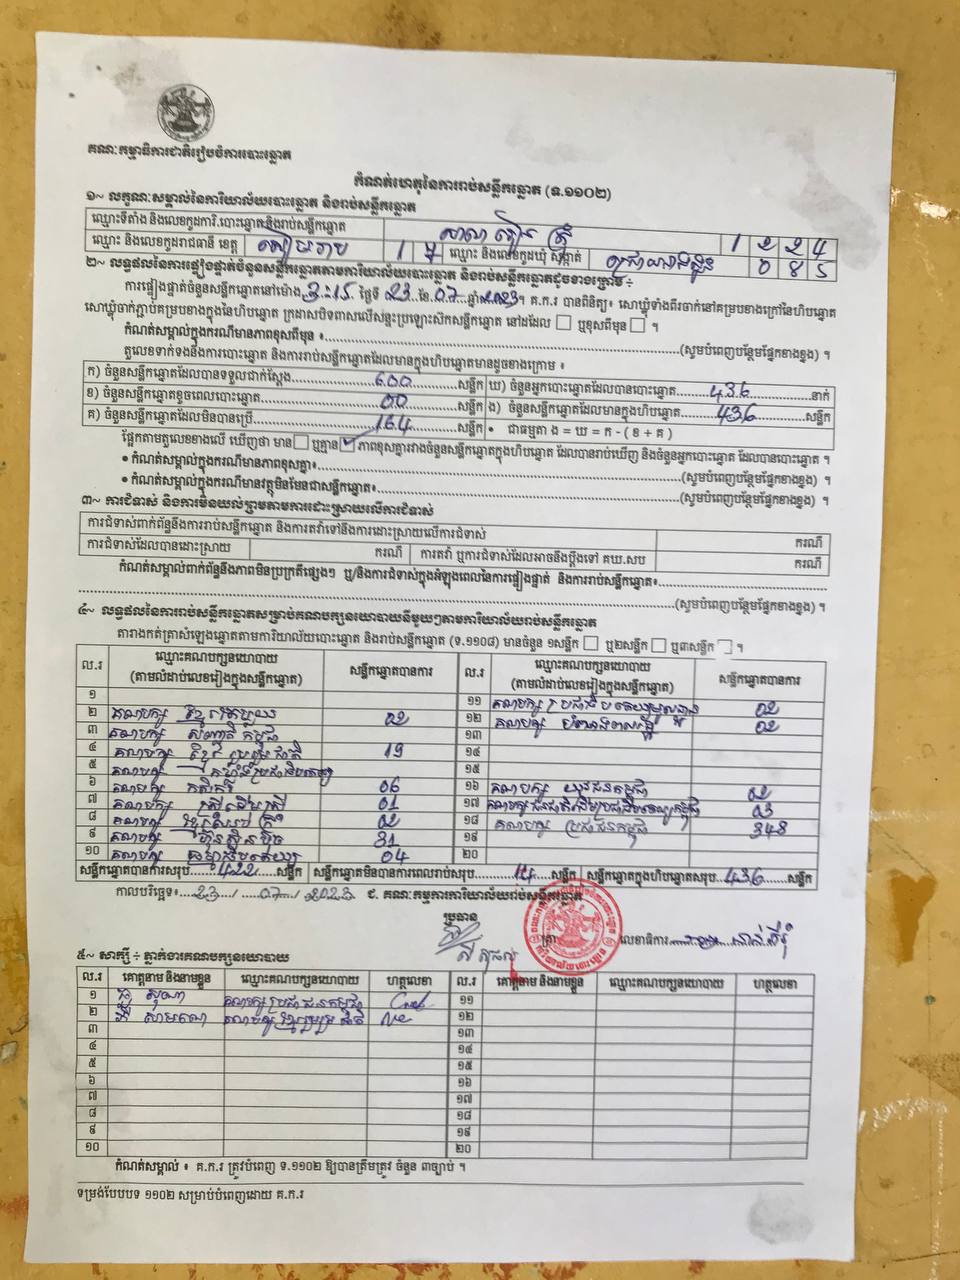 គណៈកម្មាធិការជាតិរៀបចំការបោះឆ្នោត
កំណត់ហេតុនៃការរាប់សន្លឹកឆ្នោត (ទ.១១០២)
១~ លក្ខណៈសម្គាល់នៃការិយាល័យបោះឆ្នោត និងរាប់សន្លឹកឆ្នោត
ឈ្មោះទីតាំង និងលេខកូដការិ.បោះឆ្នោតនិងរាប់សន្លឹកឆ្នោត សាលា 1 2 2 4
ឈ្មោះ និងលេខកូដរាជធានី ខេត្ត សៀមរាប 1 ឈ្មោះ និងលេខកូដឃុំ សង្កាត់ 0 8 5
២~ លទ្ធផលនៃការផ្ទៀងផ្ទាត់ចំនួនសន្លឹកឆ្នោតតាមការិយាល័យបោះឆ្នោត និងរាប់សន្លឹកឆ្នោតដូចខាងក្រោម ÷
ការផ្ទៀងផ្ទាត់ចំនួនសន្លឹកឆ្នោតនៅម៉ោង 3:15 ថ្ងៃទី 23 ខែ 07 ឆ្នាំ 2023។ គ.ក.រ បានពិនិត្យ៖ សោឃ្លុំទាំងពីរចាក់នៅគម្របខាងក្រៅនៃហិបឆ្នោត
សោឃ្លុំចាក់ភ្ជាប់គម្របខាងក្នុងនៃហិបឆ្នោត ក្រដាសបិទពាសលើសន្ទះប្រឡោះស៊កសន្លឹកឆ្នោត នៅដដែល ☐ ឬខុសពីមុន ☐ ។
កំណត់សម្គាល់ក្នុងករណីមានភាពខុសពីមុន ៖ (សូមបំពេញបន្ថែមផ្នែកខាងខ្នង) ។
តួលេខទាក់ទងនឹងការបោះឆ្នោត និងការរាប់សន្លឹកឆ្នោតដែលមានក្នុងហិបឆ្នោតមានដូចខាងក្រោម ៖
ក) ចំនួនសន្លឹកឆ្នោតដែលបានទទួលជាក់ស្តែង 600 សន្លឹក ឃ) ចំនួនអ្នកបោះឆ្នោតដែលបានបោះឆ្នោត 436 នាក់
ខ) ចំនួនសន្លឹកឆ្នោតខូចពេលបោះឆ្នោត 00 សន្លឹក ង) ចំនួនសន្លឹកឆ្នោតដែលមានក្នុងហិបឆ្នោត 436 សន្លឹក
គ) ចំនួនសន្លឹកឆ្នោតដែលមិនបានប្រើ 164 សន្លឹក • ជាធម្មតា ង = ឃ = ក - ( ខ + គ )
ផ្អែកតាមតួលេខខាងលើ ឃើញថា មាន ☐ ឬគ្មាន ☑ ភាពខុសគ្នារវាងចំនួនសន្លឹកឆ្នោតក្នុងហិបឆ្នោត ដែលបានរាប់ឃើញ និងចំនួនអ្នកបោះឆ្នោត ដែលបានបោះឆ្នោត ។
• កំណត់សម្គាល់ក្នុងករណីមានភាពខុសគ្នា៖ (សូមបំពេញបន្ថែមផ្នែកខាងខ្នង) ។
• កំណត់សម្គាល់ក្នុងករណីមានវត្ថុមិនមែនជាសន្លឹកឆ្នោត៖ (សូមបំពេញបន្ថែមផ្នែកខាងខ្នង) ។
៣~ ការជំទាស់ និងការមិនយល់ព្រមតាមការដោះស្រាយលើការជំទាស់
ការជំទាស់ពាក់ព័ន្ធនឹងការរាប់សន្លឹកឆ្នោត និងការតវ៉ាទៅនឹងការដោះស្រាយលើការជំទាស់ ករណី
ការជំទាស់ដែលបានដោះស្រាយ ករណី ការតវ៉ា ឬការជំទាស់ដែលអាចនឹងប្តឹងទៅ គឃ.សប ករណី
កំណត់សម្គាល់ពាក់ព័ន្ធនឹងភាពមិនប្រក្រតីផ្សេងៗ ឬ/និងការជំទាស់ក្នុងអំឡុងពេលនៃការផ្ទៀងផ្ទាត់ និងការរាប់សន្លឹកឆ្នោត៖
(សូមបំពេញបន្ថែមផ្នែកខាងខ្នង) ។
៤~ លទ្ធផលនៃការរាប់សន្លឹកឆ្នោតសម្រាប់គណបក្សនយោបាយនីមួយៗតាមការិយាល័យរាប់សន្លឹកឆ្នោត
តារាងកត់ត្រាសំឡេងឆ្នោតតាមការិយាល័យបោះឆ្នោត និងរាប់សន្លឹកឆ្នោត (ទ.១១០៨) មានចំនួន ១សន្លឹក ☐ ឬ២សន្លឹក ☐ ឬ៣សន្លឹក ☐ ។
ល.រ ឈ្មោះគណបក្សនយោបាយ (តាមលំដាប់លេខរៀងក្នុងសន្លឹកឆ្នោត) សន្លឹកឆ្នោតបានការ ល.រ ឈ្មោះគណបក្សនយោបាយ (តាមលំដាប់លេខរៀងក្នុងសន្លឹកឆ្នោត) សន្លឹកឆ្នោតបានការ
១ ១១ គណបក្ស ប្រជាធិបតេយ្យមូលដ្ឋាន 02
២ គណបក្ស 02 ១២ គណបក្ស 02
៣ គណបក្ស កម្ពុជា ១៣
៤ គណបក្ស ខ្មែររួបរួមជាតិ 19 ១៤
៥ គណបក្ស កម្លាំងប្រជាធិបតេយ្យ ១៥
៦ គណបក្ស កសិករ 06 ១៦ គណបក្ស យុវជនកម្ពុជា 02
៧ គណបក្ស ស្ត្រីដើម្បីស្ត្រី 01 ១៧ គណបក្ស ជនជាតិដើមប្រជាធិបតេយ្យកម្ពុជា 03
៨ គណបក្ស 02 ១៨ គណបក្ស ប្រជាជនកម្ពុជា 348
៩ គណបក្ស ហ៊្វុនស៊ិនប៉ិច 31 ១៩
១០ គណបក្ស ធម្មាធិបតេយ្យ 04 ២០
សន្លឹកឆ្នោតបានការសរុប 422 សន្លឹក សន្លឹកឆ្នោតមិនបានការពេលរាប់សរុប 14 សន្លឹក សន្លឹកឆ្នោតក្នុងហិបឆ្នោតសរុប 436 សន្លឹក
កាលបរិច្ឆេទ៖ 23 / 07 / 2023 ជ. គណៈកម្មការការិយាល័យរាប់សន្លឹកឆ្នោត
ប្រធាន
ត្រា លេខាធិការ
៥~ សាក្សី ÷ ភ្នាក់ងារគណបក្សនយោបាយ
ល.រ គោត្តនាម និងនាមខ្លួន ឈ្មោះគណបក្សនយោបាយ ហត្ថលេខា ល.រ គោត្តនាម និងនាមខ្លួន ឈ្មោះគណបក្សនយោបាយ ហត្ថលេខា
១ គណបក្ស ប្រជាជនកម្ពុជា ១១
២ គណបក្ស ខ្មែររួបរួមជាតិ ១២
៣ ១៣
៤ ១៤
៥ ១៥
៦ ១៦
៧ ១៧
៨ ១៨
៩ ១៩
១០ ២០
កំណត់សម្គាល់ ៖ គ.ក.រ ត្រូវបំពេញ ទ.១១០២ ឱ្យបានត្រឹមត្រូវ ចំនួន ៣ច្បាប់ ។
ទម្រង់បែបបទ ១១០២ សម្រាប់បំពេញដោយ គ.ក.រ